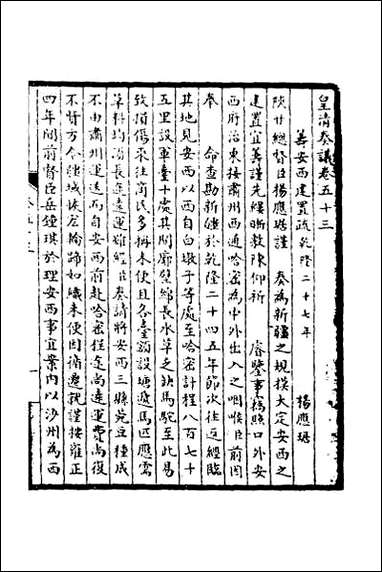 皇清奏議卷五十三
善安西建置疏乾隆二十七年 楊應琚
陝甘總督臣楊應琚謹 奏為新疆之規模大定安西之
建置宜善謹先縷晰敷陳仰祈 睿鑒事竊照口外安
西府治東接肅州西通哈密為中外出入之咽喉臣前因
奉 命查勘新疆於乾隆二十四五年節次往返經臨
其地見安西以西自白墩子等處至哈密計程八百七十
五里設軍臺十處其間廓壁綿長水草乏缺馬駝至此易
致損傷來往商民多稱未便且各臺額設塘遞馬匹應需
草料均須長途運雖經臣奏請將安西三縣豌豆種成
不由肅州運送而自安西前赴哈密程途尚遠運費尚復
不貲方今陲域埃左輪蹄如織未便因循遷就謹按雍正
四年間前督臣岳鍾琪於理安西事宜案內以沙州為西